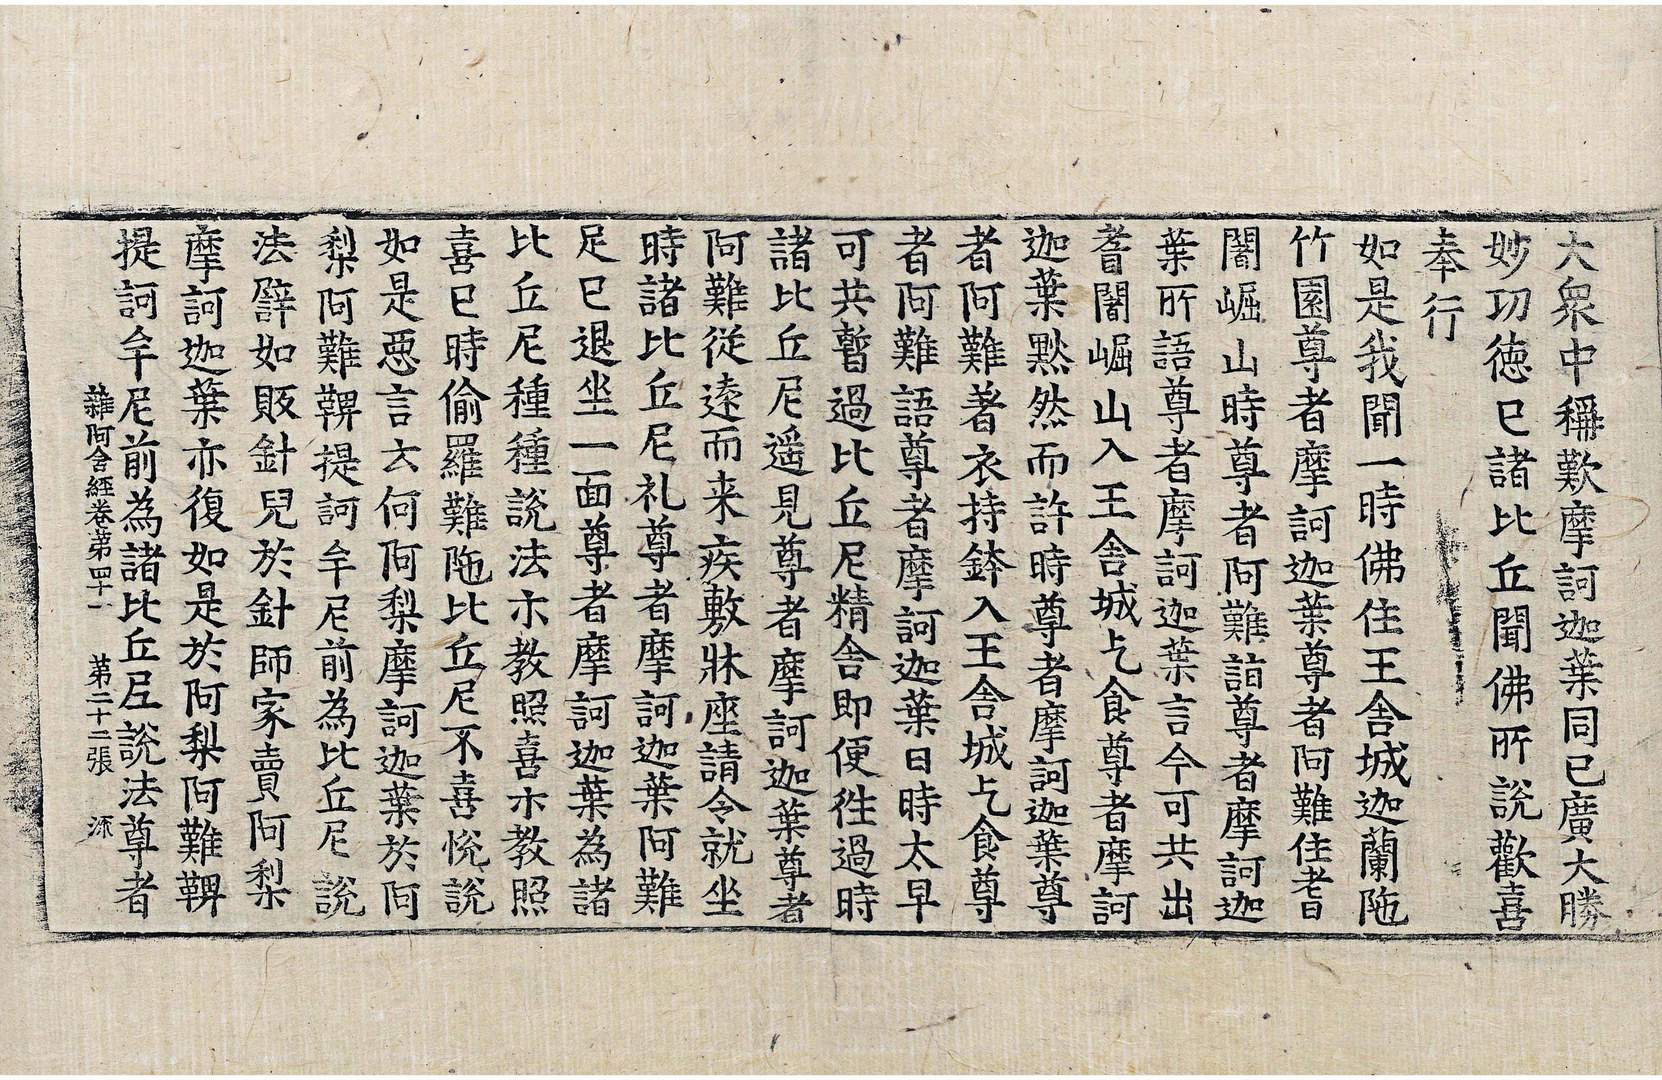 大衆中稱歎摩訶迦葉同已廣大勝
妙功徳已諸比丘聞佛所說歡喜
奉行
如是我聞一時佛住王舎城迦蘭陁
竹園尊者摩訶迦葉尊者阿難住耆
闍崛山時尊者阿難詣尊者摩訶迦
葉所語尊者摩訶迦葉言今可共出
耆闍崛山入王舎城乞食尊者摩訶
迦葉黙然而許時尊者摩訶迦葉尊
者阿難著衣持鉢入王舎城乞食尊
者阿難語尊者摩訶迦葉日時太早
可共暫過比丘尼精舎即便徃過時
諸比丘尼遥見尊者摩訶迦葉尊者
阿難従逺而来疾敷牀座請令就坐
時諸比丘尼礼尊者摩訶迦葉阿難
足已退坐一面尊者摩訶迦葉為諸
比丘尼種種說法示教照喜示教照
喜已時偷羅難陁比丘尼不喜悅說
如是惡言云何阿梨摩訶迦葉於阿
梨阿難鞞提訶牟尼前為比丘尼說
法譬如販針兒於針師家賣阿梨
摩訶迦葉亦復如是於阿梨阿難鞞
提訶牟尼前為諸比丘尼說法尊者
雜阿含經卷第四十一　第二十二張　㳅